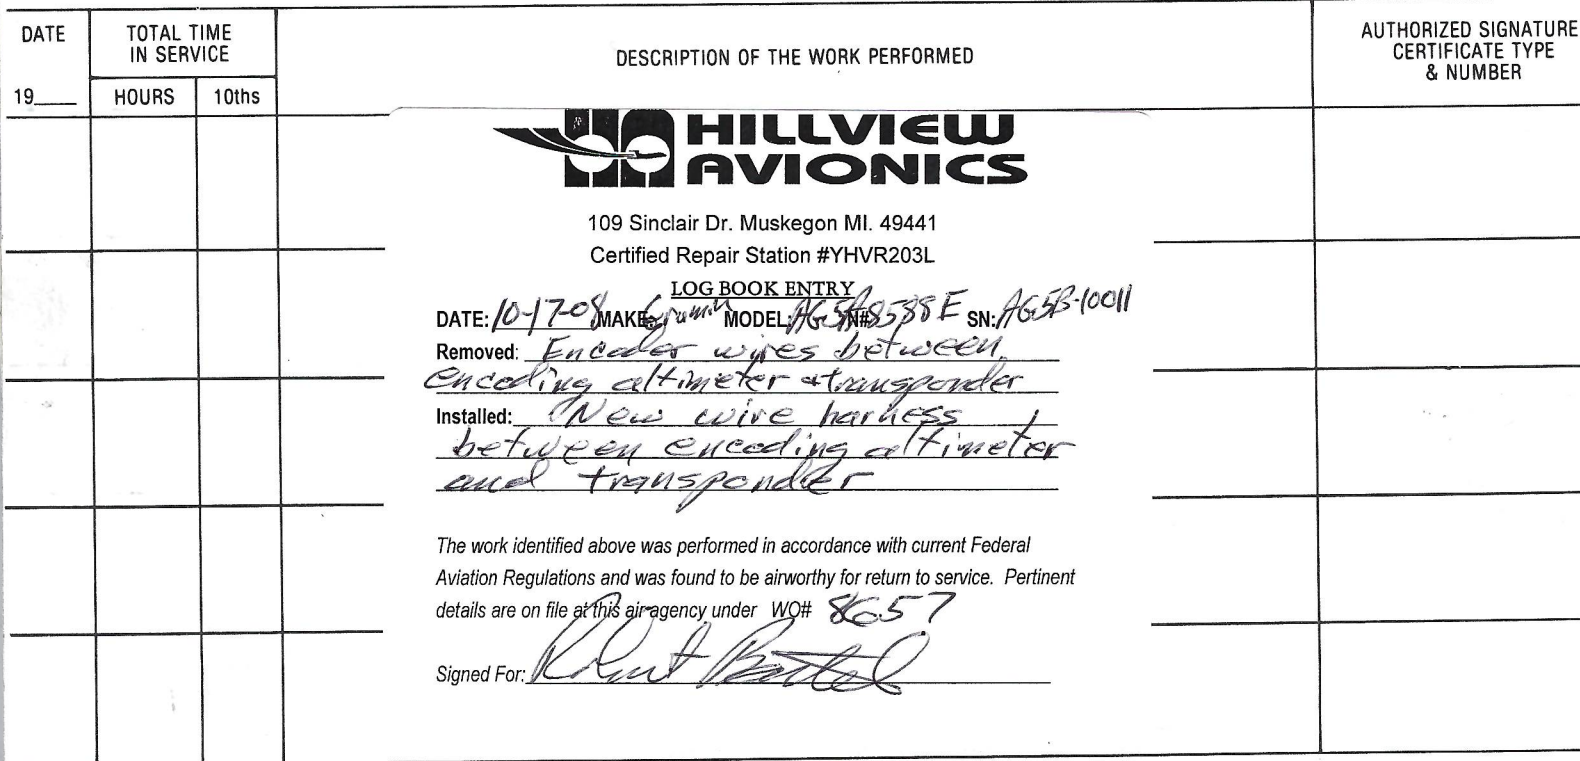 DATE
TOTAL TIME
IN SERVICE
DESCRIPTION OF THE WORK PERFORMED
AUTHORIZED SIGNATURE
CERTIFICATE TYPE
& NUMBER
19___
HOURS
10ths
HILLVIEW
AVIONICS
109 Sinclair Dr. Muskegon MI. 49441
Certified Repair Station #YHVR203L
LOG BOOK ENTRY
DATE: 10-17-08 MAKE: MODEL: N# 8588E SN: AG5B-10011
Removed: Encoder wires between
encoding altimeter + transponder
Installed: New wire harness
between encoding altimeter
and transponder
The work identified above was performed in accordance with current Federal
Aviation Regulations and was found to be airworthy for return to service. Pertinent
details are on file at this air agency under WO# 8657
Signed For: Robert